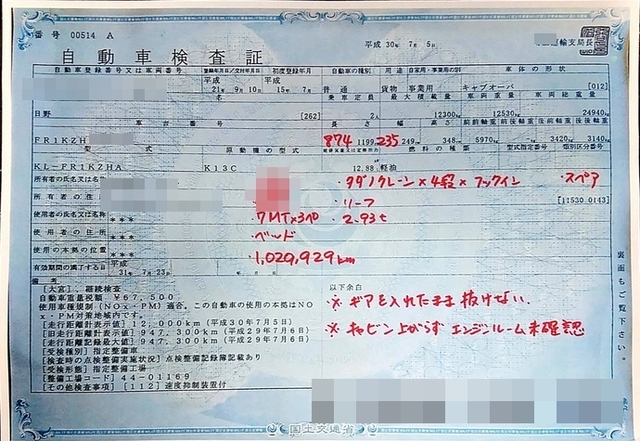 番号 00514 A
平成 30年 7月 5日
運輸支局長
自動車検査証
自動車登録番号又は車両番号 登録年月日/交付年月日 初度登録年月 自動車の種別 用途 自家用・事業用の別 車体の形状
平成 平成
21年 9月10日 15年 7月 普通 貨物 事業用 キャブオーバ [012]
乗車定員 最大積載量 車両重量 車両総重量
日野 [262] 2人 12300kg 12530kg 24940kg
車台番号 長さ 幅 高さ 前前軸重 前後軸重 後前軸重 後後軸重
FR1KZH 874 1199 235 249cm 348cm 5970kg -kg 3420kg 3140kg
型式 原動機の型式 燃料の種類 型式指定番号 類別区分番号
KL-FR1KZHA K13C 12.88 軽油
所有者の氏名又は名称 ・タダノクレーン×4段×フックイン ・スペア
所有者の住所 ・リーフ [11530 0143]
使用者の氏名又は名称 *** ・7MT×3ペD ・2.93t
使用者の住所 *** ・ベッド
使用の本拠の位置 *** ・1,029,929km
有効期間の満了する日 平成 31年 7月23日
備考
[大宮], 継続検査
自動車重量税額 ¥67,500
使用車種規制(NOx・PM)適合、この自動車の使用の本拠はNO
x・PM対策地域内です。
[走行距離計表示値] 12,000km(平成30年7月5日)
[旧走行距離計表示値] 947,300km(平成29年7月6日)
[走行距離記録最大値] 947,300km(平成29年7月6日)
[受検種別] 指定整備車
[検査時の点検整備実施状況] 点検整備記録簿記載あり
[受検形態] 指定整備工場
[整備工場コード] 44-01169
[その他検査事項] [112] 速度抑制装置付
以下余白
※ ギアを入れたまま抜けない。
※ キャビン上がらず エンジンルーム未確認
裏面もご覧下さい。
国土交通省